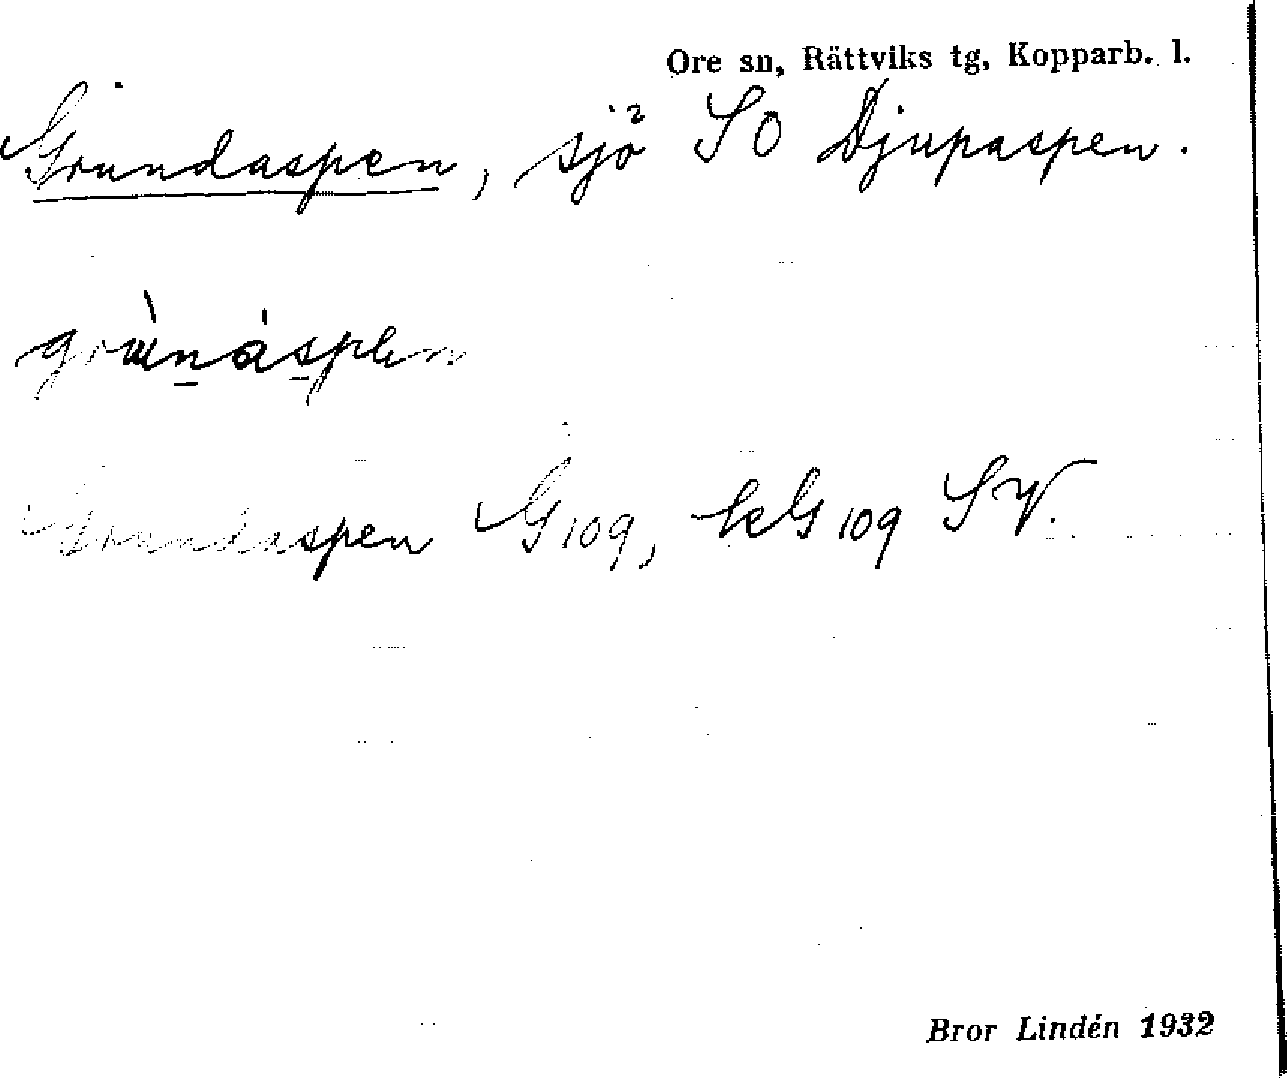 Ore sn, Rättviks tg, Kopparb. l.
Grundaspen, sjö SO Djupaspen.
Grundaspen G109, kG109 SV.
Bror Lindén 1932